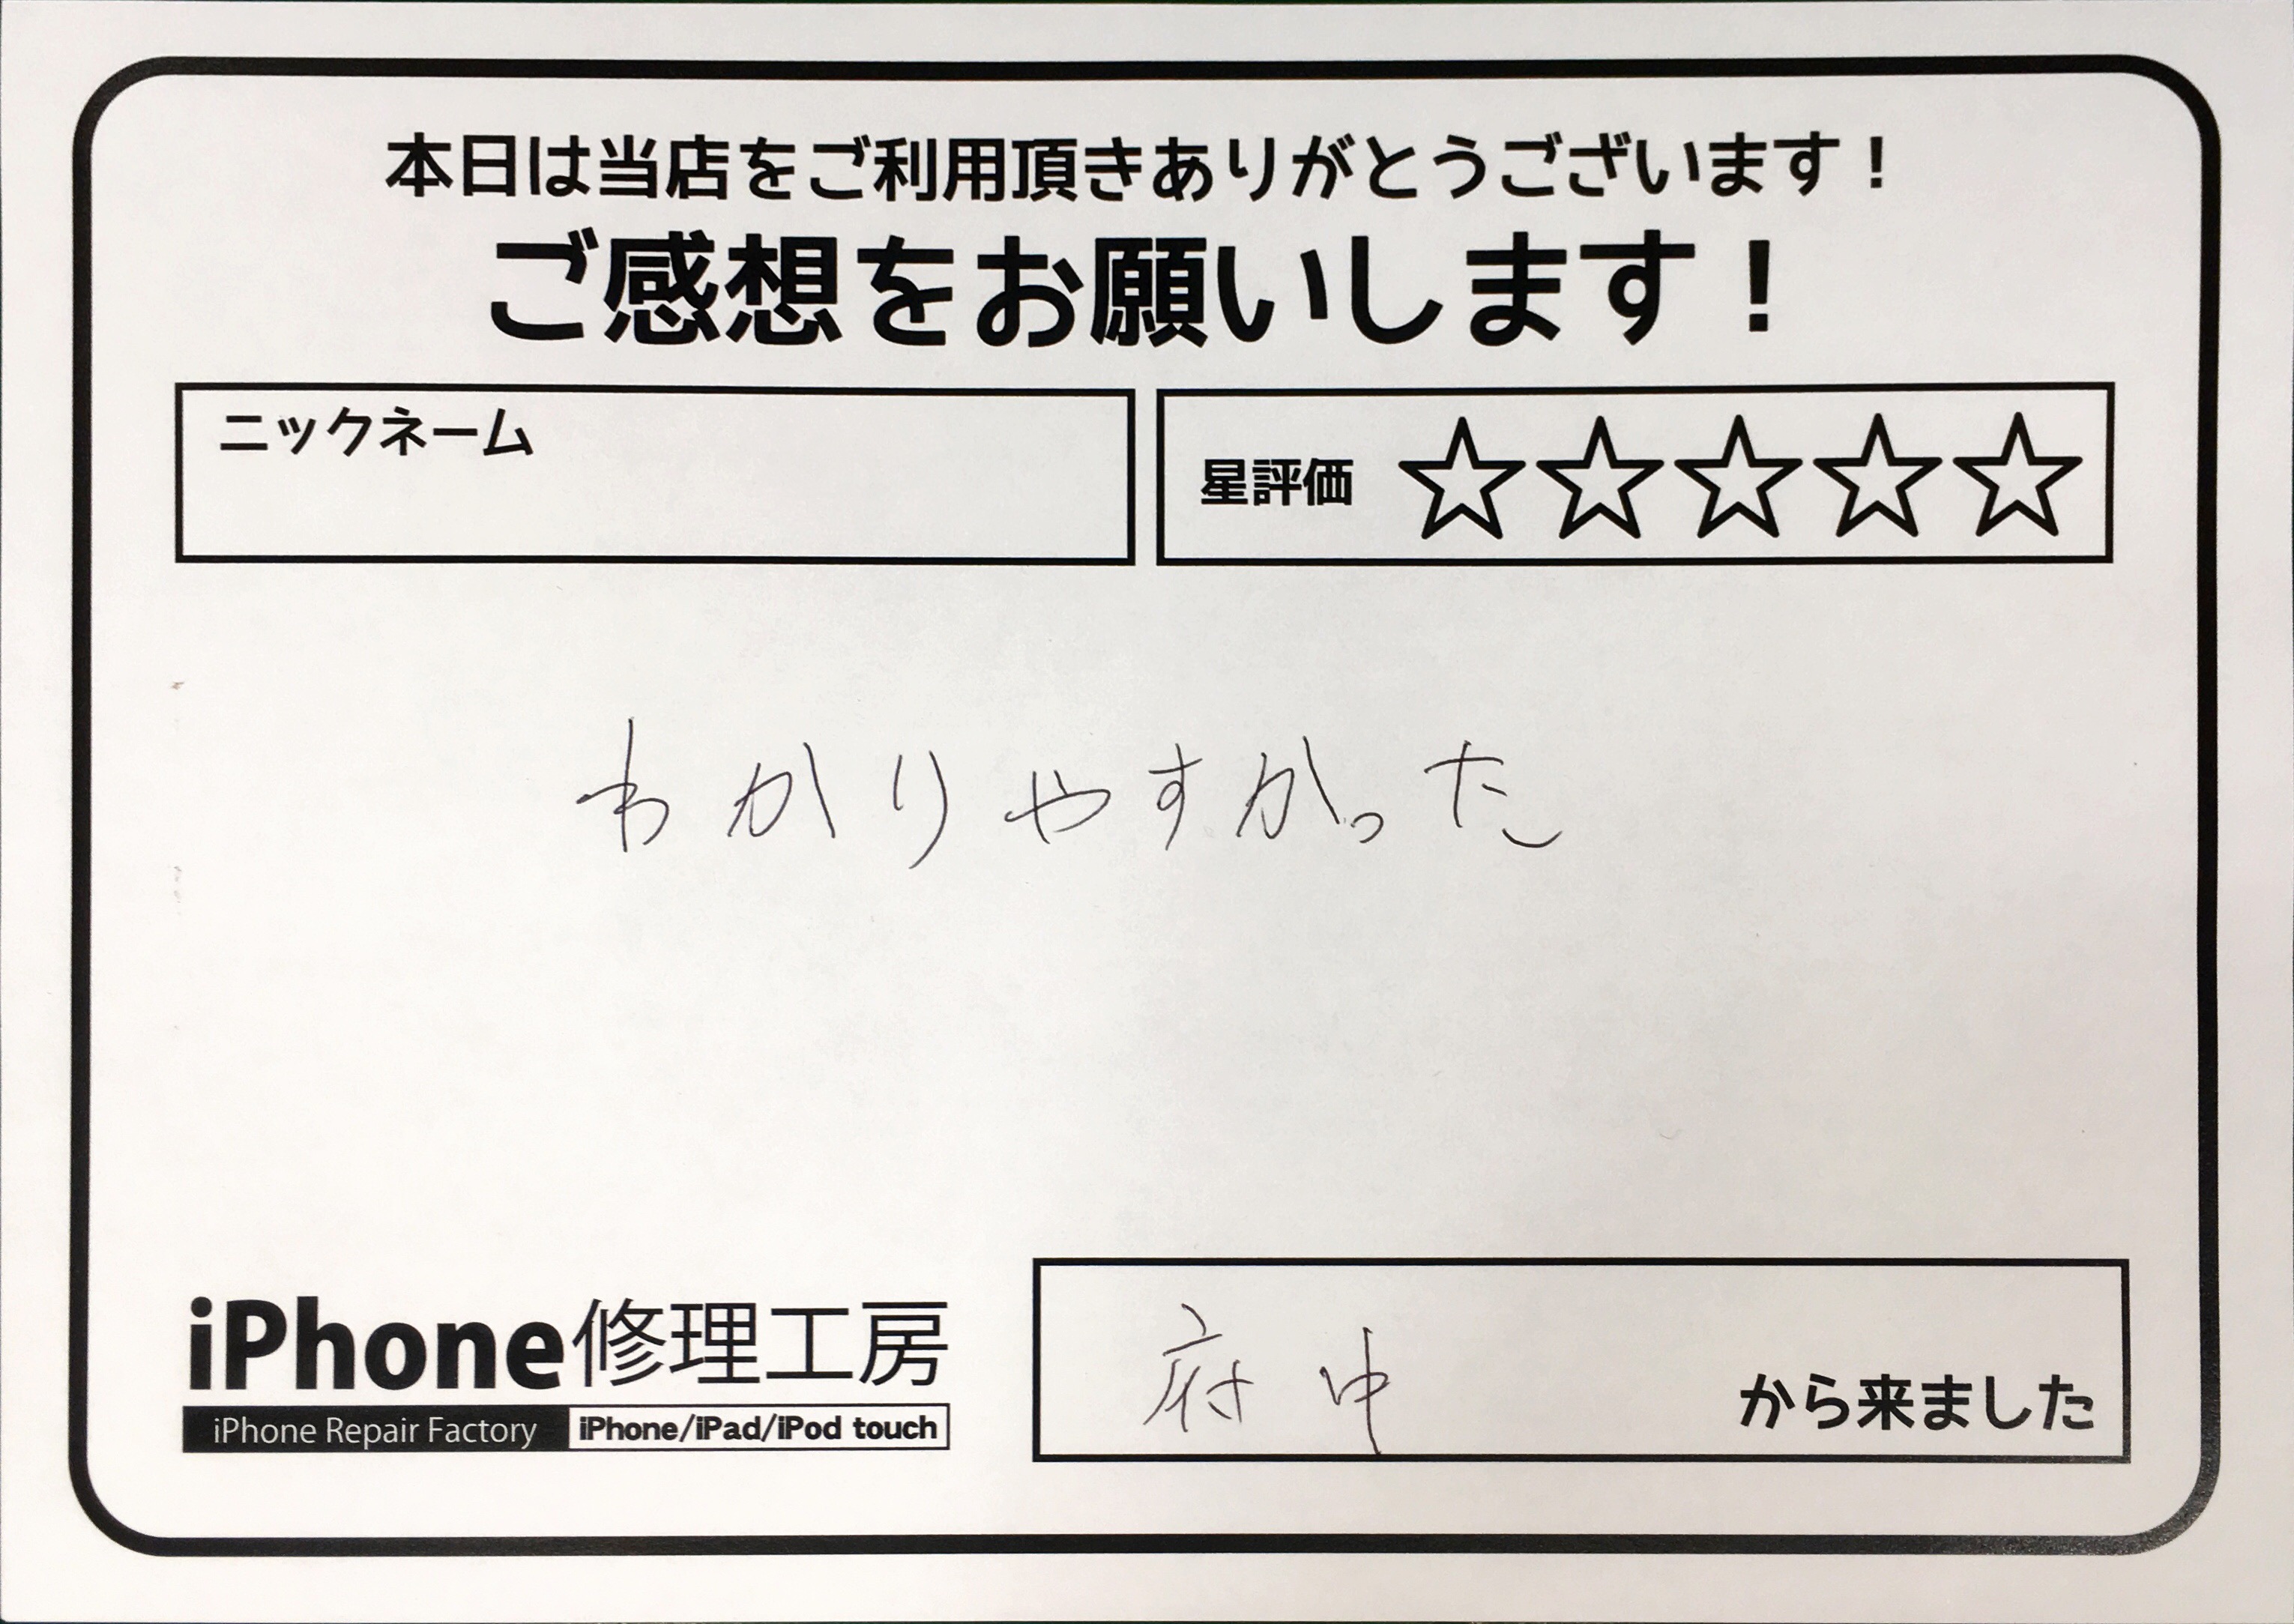 本日は当店をご利用頂きありがとうございます！
ご感想をお願いします！
ニックネーム
星評価 ☆☆☆☆☆
わかりやすかった
iPhone修理工房
iPhone Repair Factory iPhone/iPad/iPod touch
府中 から来ました